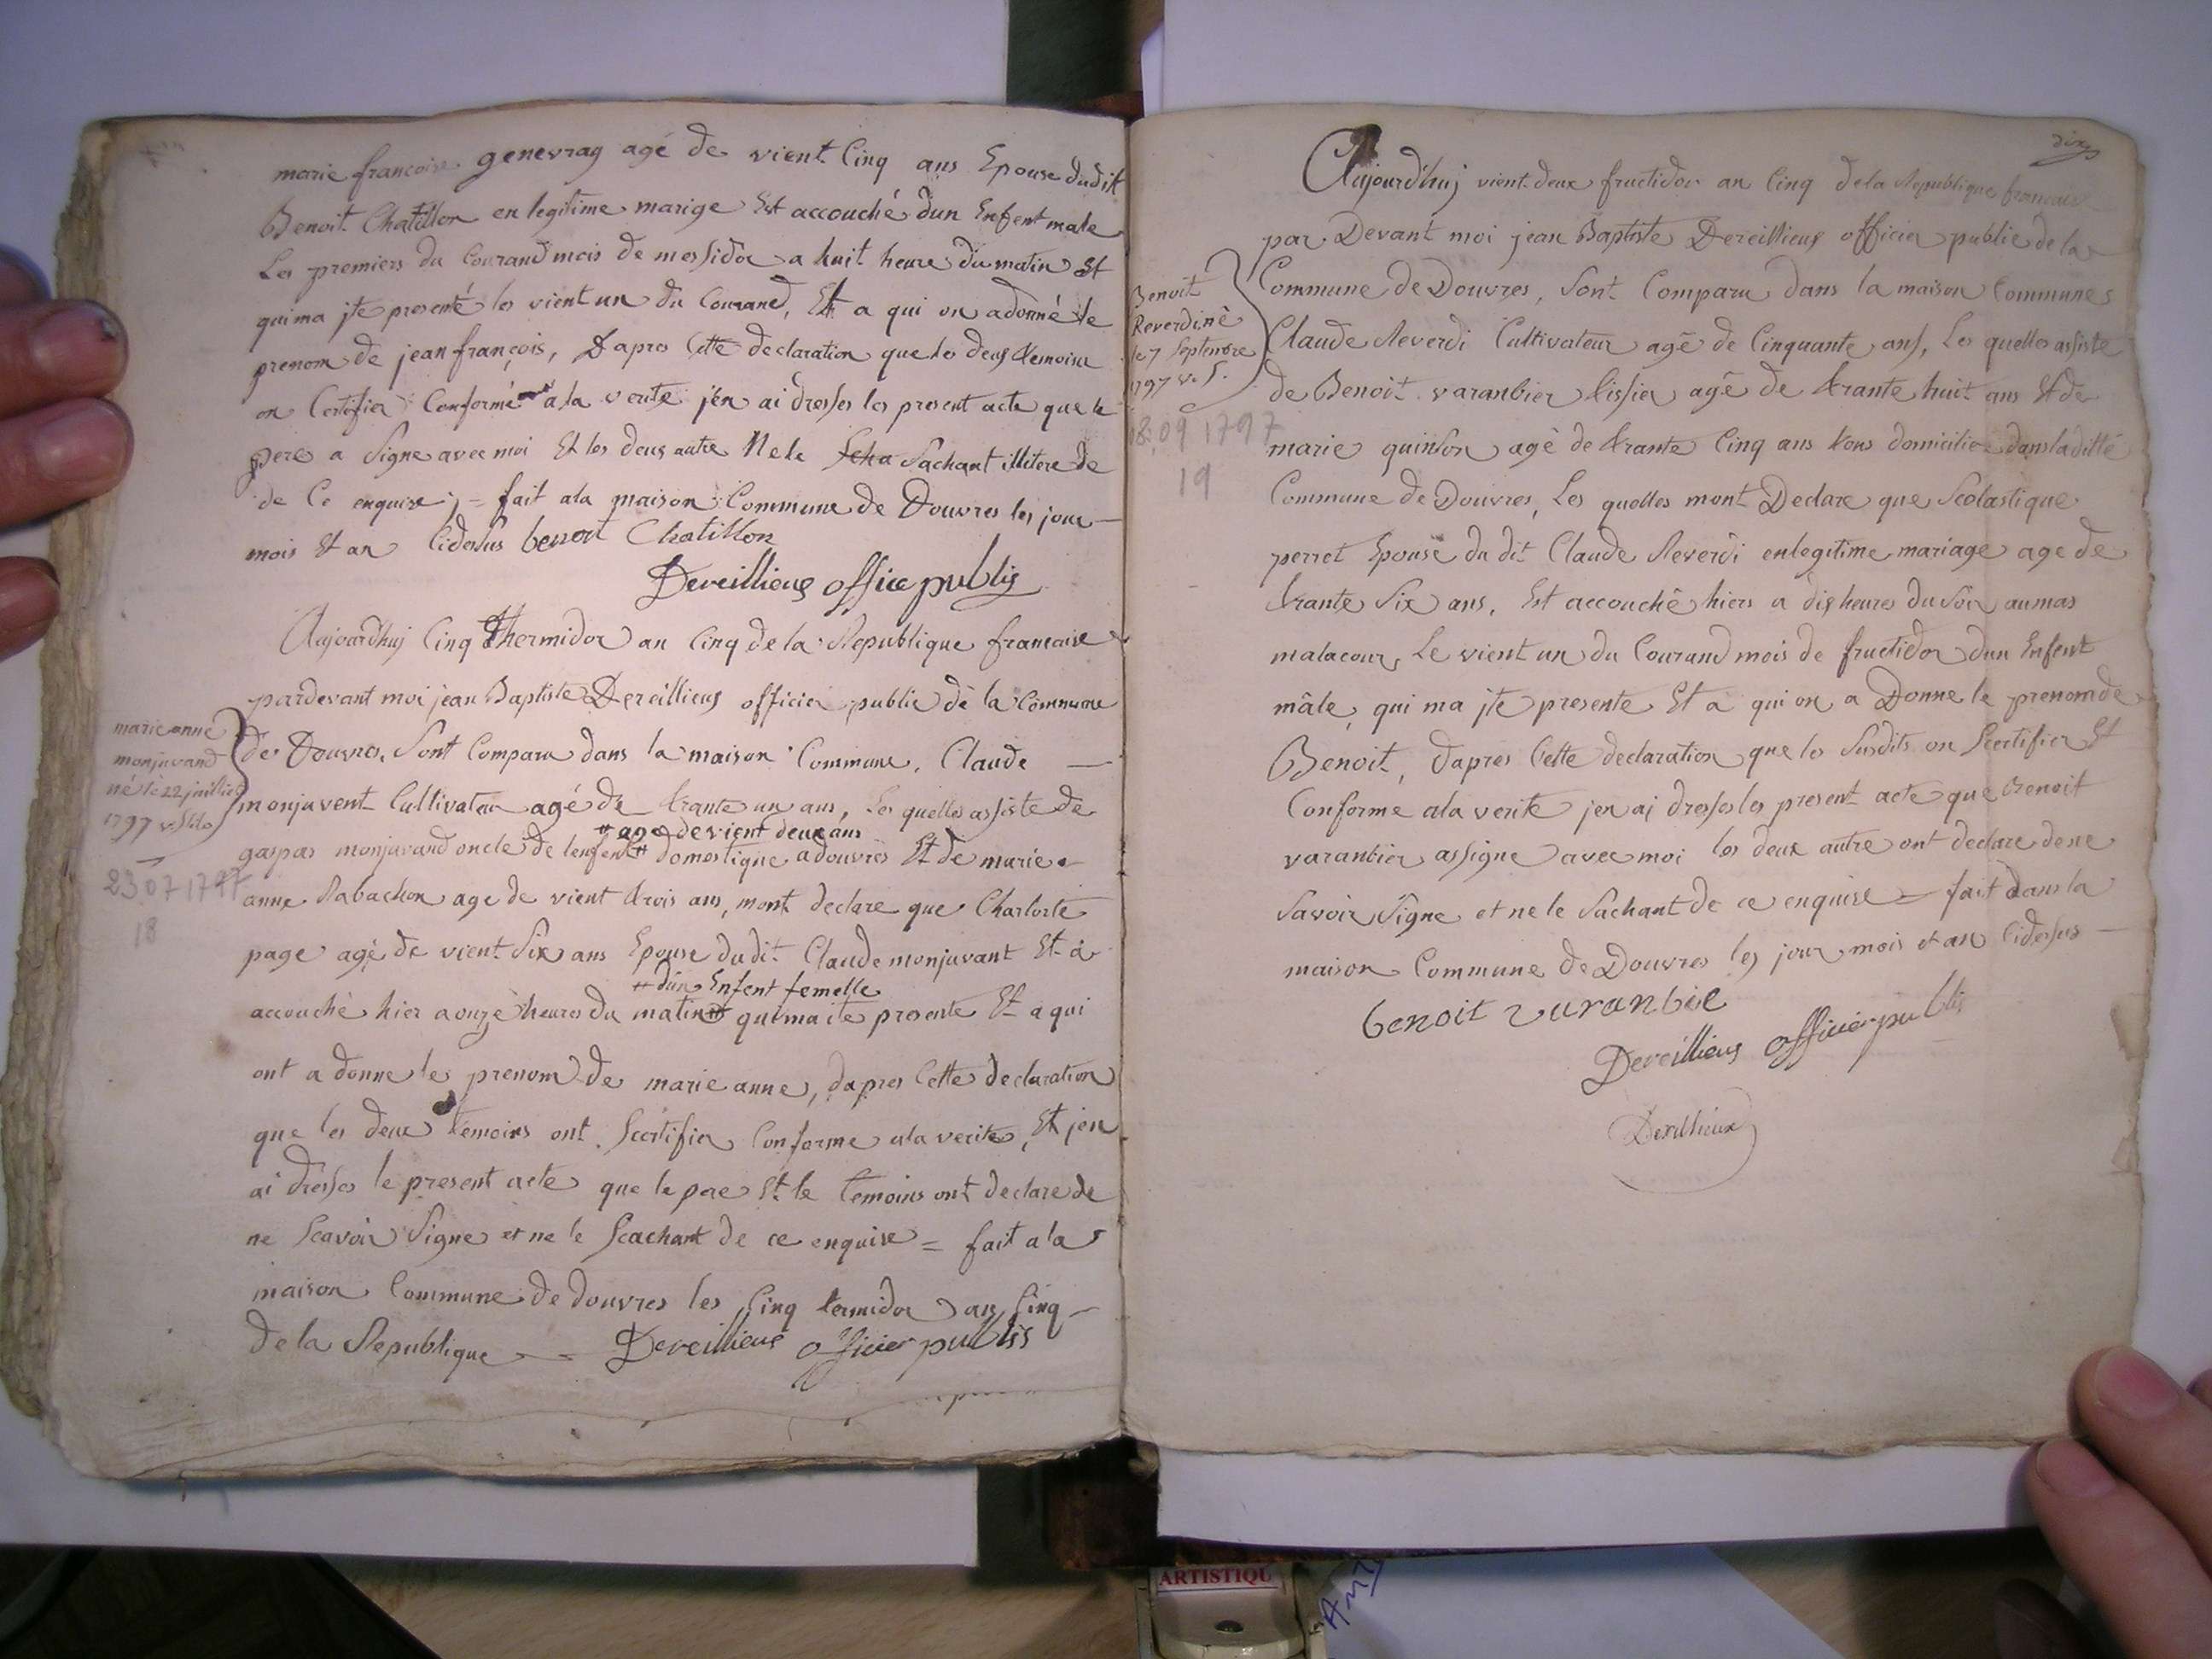 marie francoise genevray agé de vient Cinq ans Epouse dudit
Benoit Chatillon en legitime marige Est accouché dun Enfent male
Les premiers du Courand mois de messidor a huit heure du matin Et
qui ma jte presenté les vient un du Courand, Et a qui on adonné le
prenom de jean françois, Dapres Cette declaration que les deus temoins
on Certifier Conformé a la verite j'en ai dresses les present acte que le
pere a Signe avec moi Et les deus autre Ne le Scha Sachant illitere de
de Ce enquise; = fait ala maison Commune de Douvres les jour
mois Et an Cidessus benoit Chatillon
Dereillieus office publis
Aujoardhuj Cinq Thermidor an Cinq de la Republique francaise
pardevant moi jean Baptiste Dereillieus officier public de la Commune
de Douvres, Sont Comparu dans la maison Commune, Claude
monjuvent Cultivateur agé de trante un ans, Les quelles assiste de
# age de vient deux ans
gaspar monjuvand oncle de lenfent # domestique a douvres Et de marie
anne Rabachon age de vient trois ans, mont declare que Charlotte
page agé de vient Six ans Epouse dudit Claude monjuvant Et a
# dun Enfent femelle
accouché hier a onze heures du matin # qui ma ite presente Et a qui
ont a donne les prenom de marie anne, dapres Cette declaration
que les deux temoins ont Scertifier Conforme ala verite, Et jen
ai dresses le present acte que le pere Et le temoins ont declare de
ne Scavoir Signe et ne le Scachant de ce enquise = fait a la
maison Commune de douvres les Cinq termidor an Cinq
de la Republique Dereillieus officier publis
marie anne
monjuvand
né le 22 juillet
1797 v. stile
23 07 1797
18
dix
Aujourd'huj vient deux fructidor an Cinq dela Republique francaise
par Devant moi jean Baptiste Dereillieus officier public de la
Commune de Douvres, Sont Comparu dans la maison Communes
Claude Reverdi Cultivateur agé de Cinquante ans, Les quelles assiste
de Benoit varanbier tissier agé de trante huit ans Et de
marie quinson agé de trante Cinq ans tous domicilie dans la ditte
Commune de Douvres, Les quelles mont Declare que Scolastique
perret Epouse du dit Claude Reverdi en legitime mariage age de
trante Six ans, Est accouché hiers a dix heures du Soir au mas
malacour, Le vient un du Courand mois de fructidor dun Enfent
mâle, qui ma jte presente Et a qui on a Donne le prenom de
Benoit, dapres Cette declaration que les Susdits on Scertifier Et
Conforme ala verite jen aj dresses les present acte que Benoit
varanbier assigne avec moi les deux autre ont declare de ne
Savoir Signe et ne le Sachant de ce enquise = fait dans la
maison Commune de Douvres les jour mois et an Cidessus
benoit varanbie
Dereillieus officier publis
Dereillieux
Benoit
Reverdi né
le 7 Septembre
1797 v. S.
8.09 1797
19
ARTISTIQU